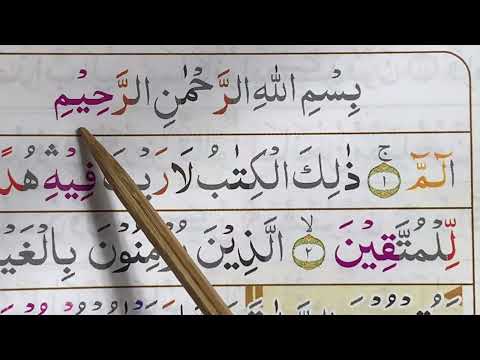 بِسْمِ اللّٰهِ الرَّحْمٰنِ الرَّحِيْمِ
الٓمّٓ ۚ ١ ذٰلِكَ الْكِتٰبُ لَا رَيْبَ فِيْهِ ۛ هُدًى
لِّلْمُتَّقِيْنَ ۙ ٢ الَّذِيْنَ يُؤْمِنُوْنَ بِالْغَيْ